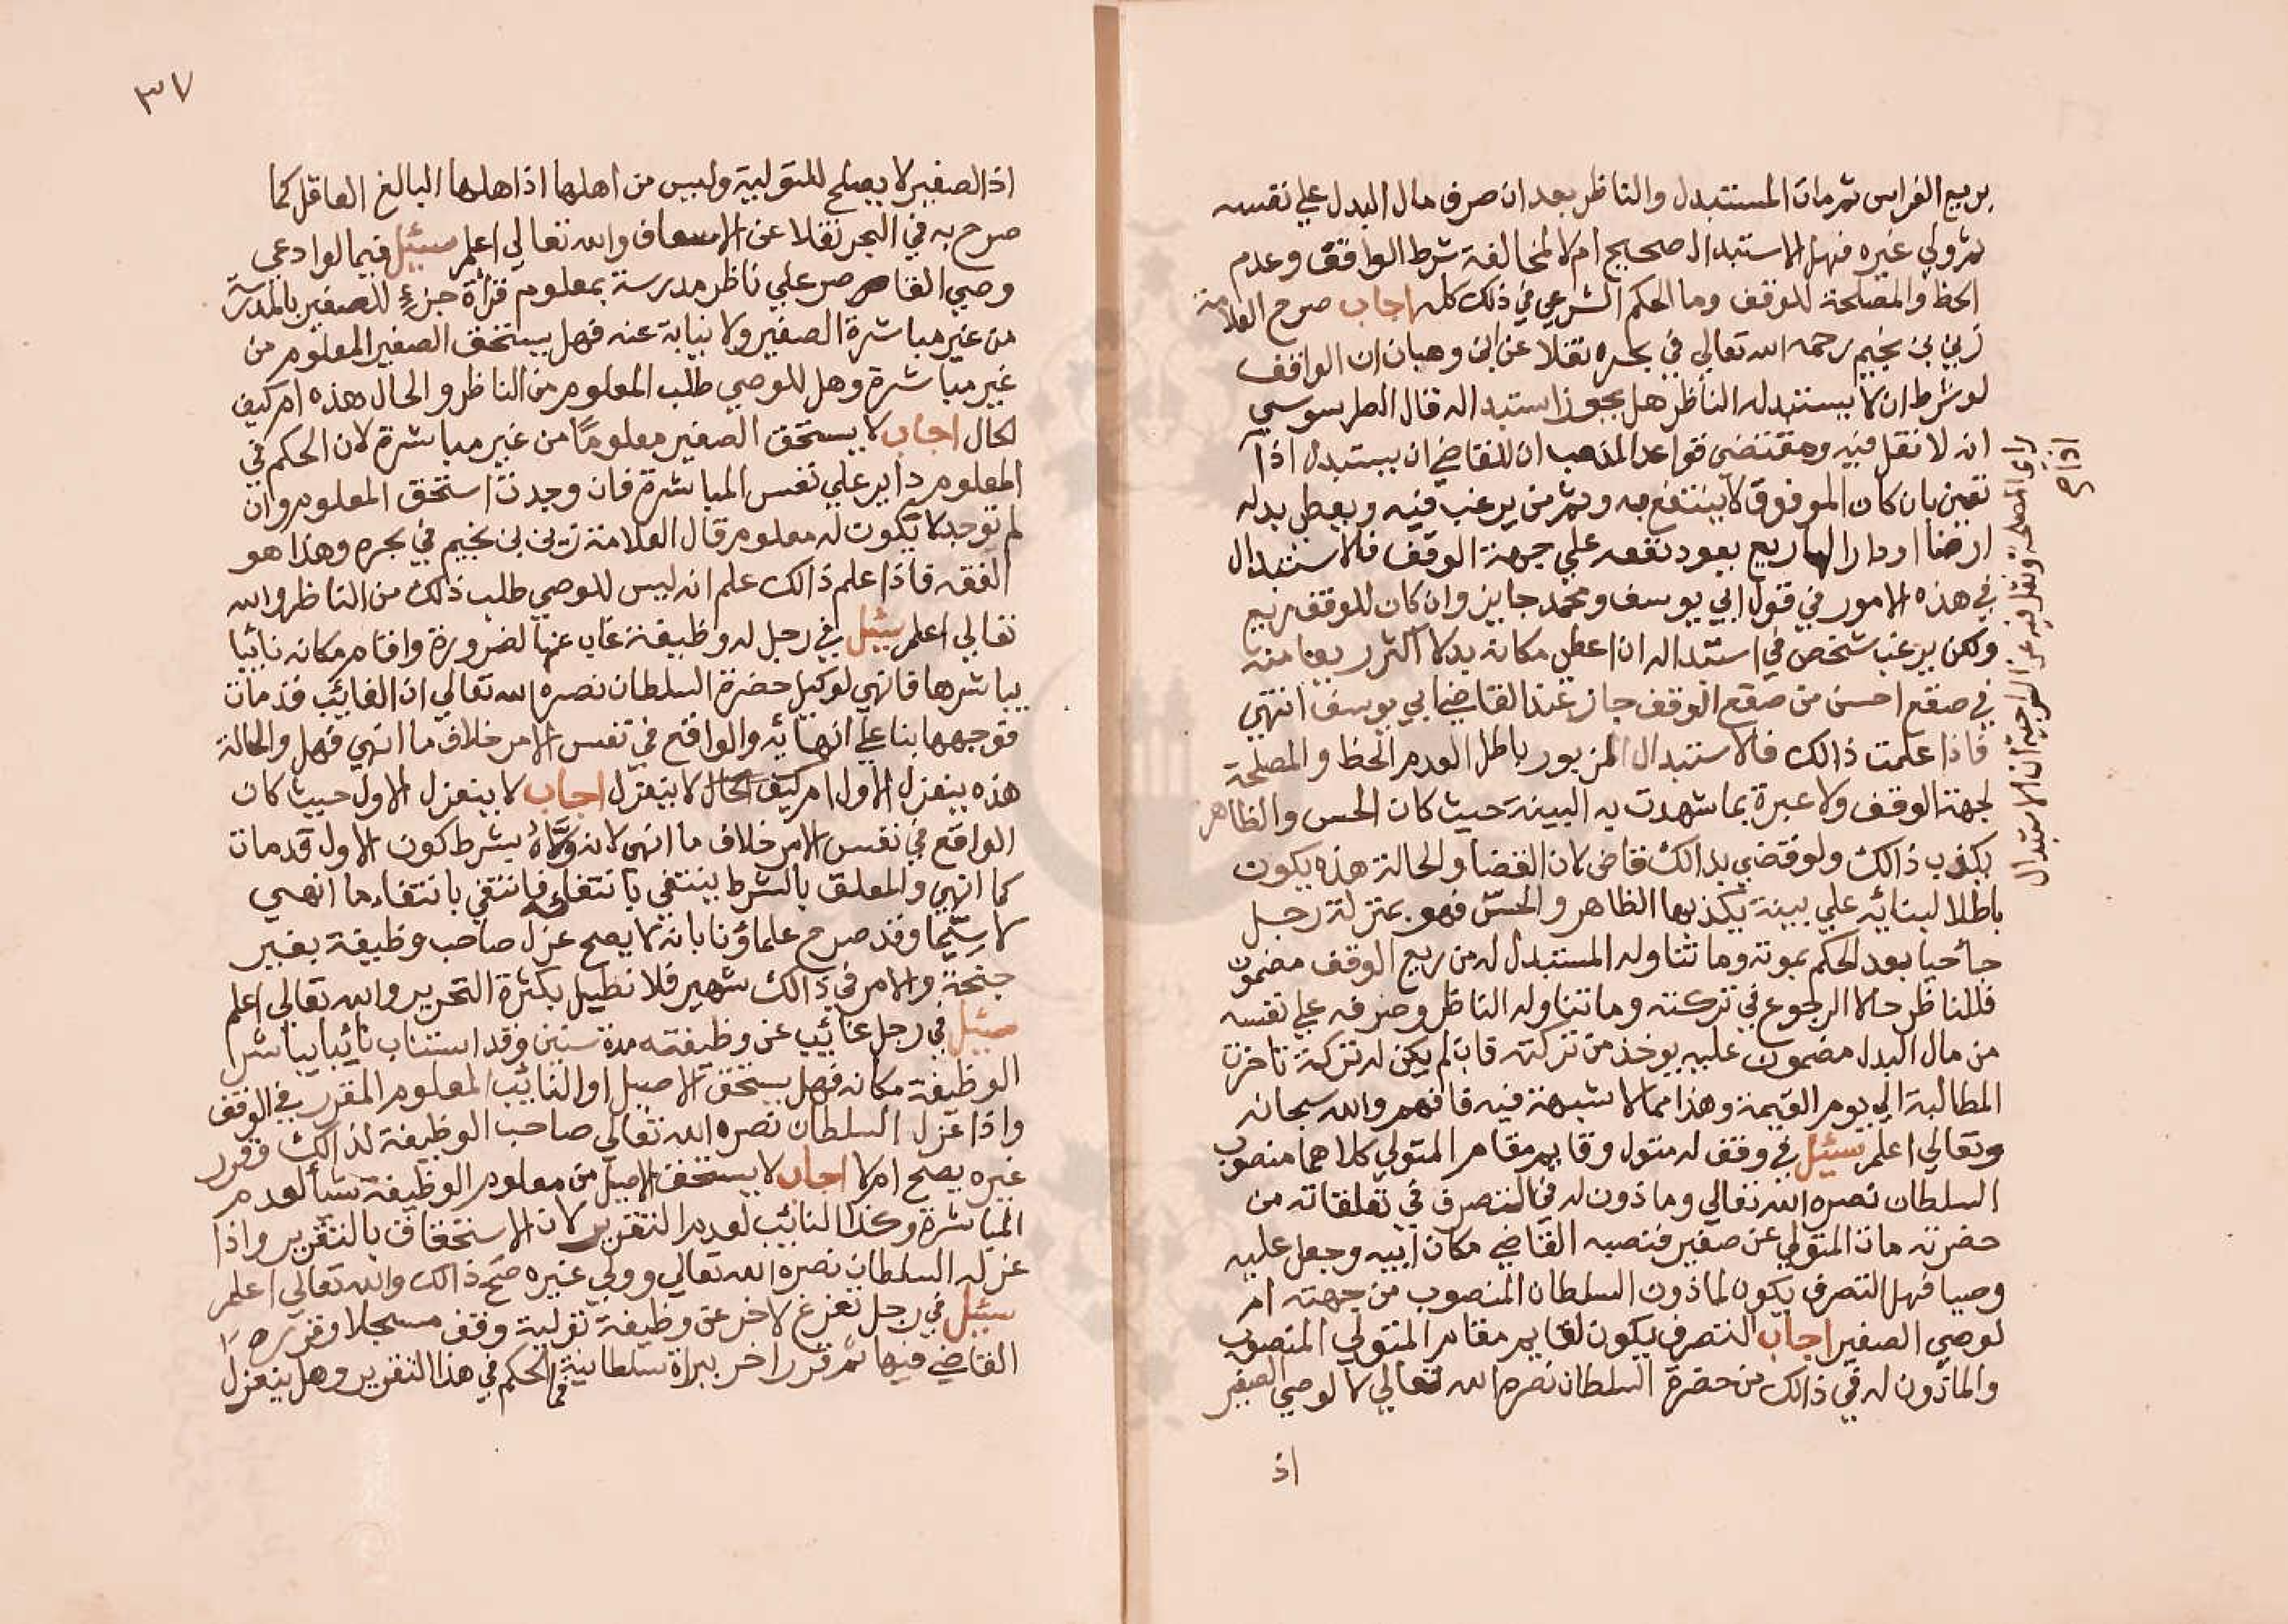 بريع الغراس ثم مات المستبدل والناظر بعد ان صرف مال البدل علي نفسه
ثم ولي غيره فهل الاستبدال صحيح ام لا لمخالفة شرط الواقف وعدم
الحظ والمصلحة للوقف وما الحكم الشرعي في ذلك كله اجاب صرح العلامة
زين بن نجيم رحمه الله تعالي في بحره نقلا عن ابن وهبان ان الواقف
لو شرط ان لا يستبدله الناظر هل يجوز استبداله قال الطرسوسي
انه لا نقل فيه ومقتضي قواعد المذهب ان للقاضي ان يستبدل اذا
راى المصلحة ونقل فيه عن السراجية ان الاستبدال
اذا
صح
تعين بان كان الموقوف لا ينتفع به وثم من يرغب فيه ويعطي بدله
ارضا او دارا لها ريع يعود نفعه علي جهة الوقف فالاستبدال
في هذه الامور في قول ابي يوسف ومحمد جايز وان كان للوقف ريع
ولكن يرغب شخص في استبداله ان اعطي مكانه بدلا اكثر ريعا منه
في صقع احسن من صقع الوقف جاز عند القاضي ابي يوسف انتهي
فاذا علمت ذالك فالاستبدال المزبور باطل لعدم الحظ والمصلحة
لجهة الوقف ولا عبرة بما شهدت به البينة حيث كان الحس والظاهر
يكذب ذالك ولو قضي بذالك قاض لان القضا والحالة هذه يكون
باطلا لبنائه علي بينة يكذبها الظاهر والحسّ فهو بمنزلة رجل
جأ حيا بعد الحكم بموته وما تناوله المستبدل له من ريع الوقف مضمون
فللناظر حالا الرجوع في تركته وما تناوله الناظر وصرفه علي نفسه
من مال البدل مضمون عليه يوخذ من تركته فان لم يكن له تركة تاخرت
المطالبة الي يوم القيمة وهذا مما لا شبهة فيه فافهم والله سبحانه
وتعالي اعلم سئيل في وقف له متول وقايم مقام المتولي كلاهما منصوب
السلطان نصره الله تعالي وماذون له في التصرف في تعلقاته من
حضرته مات المتولي عن صغير فنصبه القاضي مكان ابيه وجعل عليه
وصيا فهل التصرف يكون لماذون السلطان المنصوب من جهته ام
لوصي الصغير اجاب التصرف يكون لقايم مقام المتولي المنصوب
والماذون له في ذالك من حضرة السلطان نصره الله تعالي لا لوصي الصغير
اذ
٣٧
اذ الصغير لا يصلح للتولية وليس من اهلها اذ اهلها البالغ العاقل كما
صرح به في البحر نقلا عن الاسعاف والله تعالي اعلم سئيل فيما لو ادعي
وصي القاصر علي ناظر مدرسة بمعلوم قرأة جزءٍ للصغير بالمدرسة
من غير مباشرة الصغير ولا نيابة عنه فهل يستحق الصغير المعلوم من
غير مباشرة وهل للوصي طلب المعلوم من الناظر والحال هذه ام كيف
لحال اجاب لا يستحق الصغير معلومًا من غير مباشرة لان الحكم في
المعلوم داير علي نفس المباشرة فان وجدت استحق المعلوم وان
لم توجد لا يكون له معلوم قال العلامة زين بن نجيم في بحره وهذا هو
الفقه فاذا علم ذالك علم انه ليس للوصي طلب ذالك من الناظر والله
تعالي اعلم سئيل في رجل له وظيفة غاب عنها لضرورة واقام مكانه نائبا
يباشرها فانهي لوكيل حضرة السلطان نصره الله تعالي ان الغائب قد مات
فوجهها بنا علي انهائه والواقع في نفس الامر خلاف ما انهي فهل والحالة
هذه ينعزل الاول ام كيف الحال لا ينعزل اجاب لا ينعزل الاول حيث كان
الواقع في نفس الامر خلاف ما انهي لانه ولّاهُ بشرط كون الاول قد مات
كما انهي والمعلق بالشرط ينتفي بانتفائه فانتفي بانتفاء ما انهي
لا سيّما وقد صرح علماؤنا بانه لا يصح عزل صاحب وظيفة بغير
جنحة والامر في ذالك شهير فلا نطيل بكثرة التحرير والله تعالي اعلم
سئيل في رجل غائب عن وظيفته مدة سنين وقد استناب نائبا يباشر
الوظيفة مكانه فهل يستحق الاصيل او النائب المعلوم المقرر في الوقف
واذا عزل السلطان نصره الله تعالي صاحب الوظيفة لذالك وقرر
غيره يصح ام لا اجاب لا يستحق الاصيل من معلوم الوظيفة شيأ لعدم
المباشرة وكذا النائب لعدم التقرير لان الاستحقاق بالتقرير واذا
عزله السلطان نصره الله تعالي وولي غيره صح ذالك والله تعالي اعلم
سئيل في رجل تفرغ لاخر عن وظيفة تولية وقف مسجلا وقرره
القاضي فيها ثم قرر اخر ببراة سلطانية فما الحكم في هذا التقرير وهل ينعزل